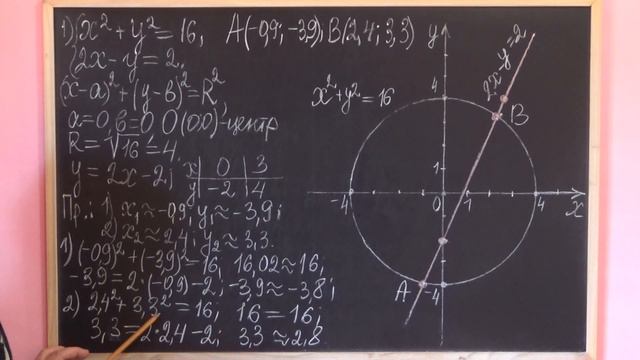 1) { x² + y² = 16, A(-0,9; -3,9); B(2,4; 3,3)
2x - y = 2.
(x-a)² + (y-b)² = R²,
a=0, b=0, O(0;0)-центр
R = √16 = 4.
y = 2x - 2; x 0 3
y -2 4
Пр.: 1) x₁ ≈ -0,9; y₁ ≈ -3,9;
2) x₂ ≈ 2,4; y₂ ≈ 3,3.
1) (-0,9)² + (-3,9)² = 16, 16,02 ≈ 16;
-3,9 = 2·(-0,9) - 2; -3,9 ≈ -3,8;
2) 2,4² + 3,3² = 16; 16 = 16;
3,3 = 2·2,4 - 2; 3,3 ≈ 2,8
y
2x - y = 2
x² + y² = 16
4
B
1
-4
0
1
4
x
A
-4